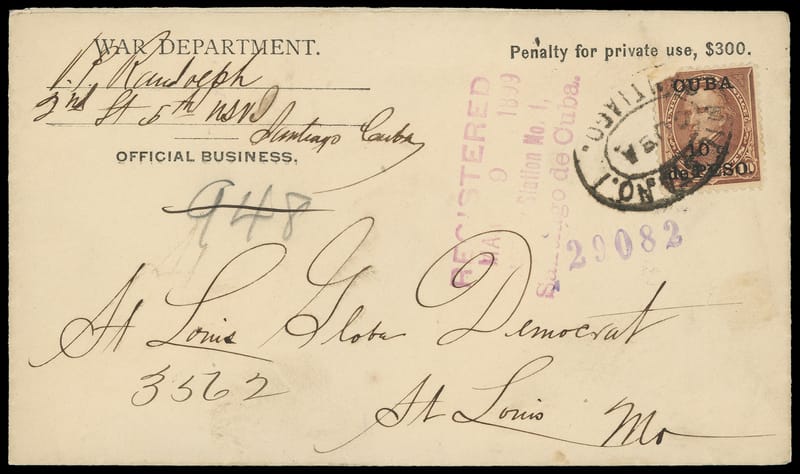 WAR DEPARTMENT.
Penalty for private use, $300.
Randolph
2nd Lt 5th USVI
Santiago Cuba
OFFICIAL BUSINESS.
948
REGISTERED
MA 9 1899
Station No. 1,
Santiago de Cuba.
29082
CUBA
10
de PESO.
NO. 1
St Louis Globe Democrat
3562
St Louis Mo